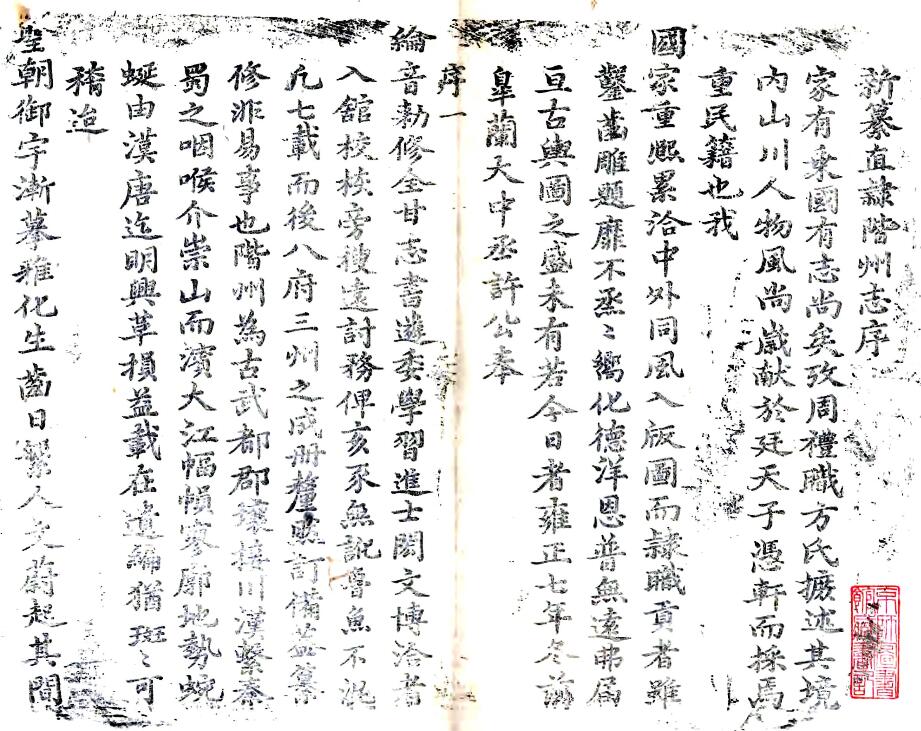 新纂直隸階州志序
家有乗國有志尚矣攷周禮職方氏摭述其境
内山川人物風尚歳献於廷天子憑軒而採焉
重民籍也我
國家重熈累洽中外同風入版圖而隷職貢者雖
鑿齒雕題靡不烝〻嚮化德洋恩普無遠弗届
亘古輿圖之盛未有若今日者雍正七年冬
臯蘭大中丞許公奉
序一
綸音勅修全甘志書遊委學習進士閎文博洽者
入舘校核旁搜遠討務俾亥豕無訛魯魚不混
凢七載而後八府三州之成册訂備葢纂
修非易事也階州為古武都郡接川漢繋秦
蜀之咽喉介崇山而濱大江幅幀寥廓地勢蜿
蜒由漢唐迄明興革損益載在遺編猶斑〻可
稽迨
聖朝御宇漸摹雅化生齒日繁人文蔚起其間